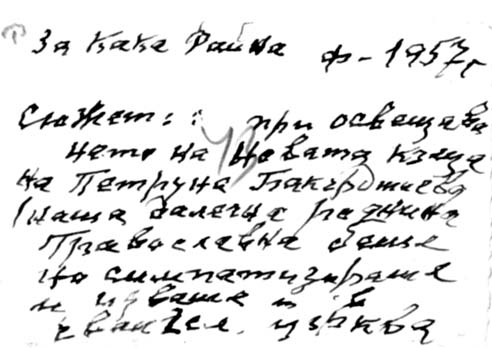 За Кака Райна ф-1957г
Сюжет: при освещава
нето на новата къща
на Петруна Бакърджиева
(наша далечна роднина
Православна беше
но симпатизираше
и идваше в
евангел. църква